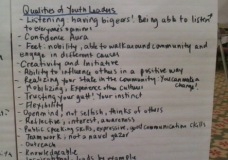 Qualities of Youth Leaders
- Listening, having big ears! Being able to listen to everyone's opinions
- Confidence, Aura
- Feet, mobility, able to walk around community and engage in different causes
- Creativity and Initiative
- Ability to influence others in a positive way
- Realizing your stake in the community. You can make a change!
- Mobilizing, Experience other cultures
- Trusting your gut! Your instinct
- Flexibility
- Open mind, not selfish, thinks of others
- Reflective, interest, awareness
- Public speaking skills, expressive, good communication skills
- Team work, not a navel gazer
- Outreach
- Knowledgeable
leads by example